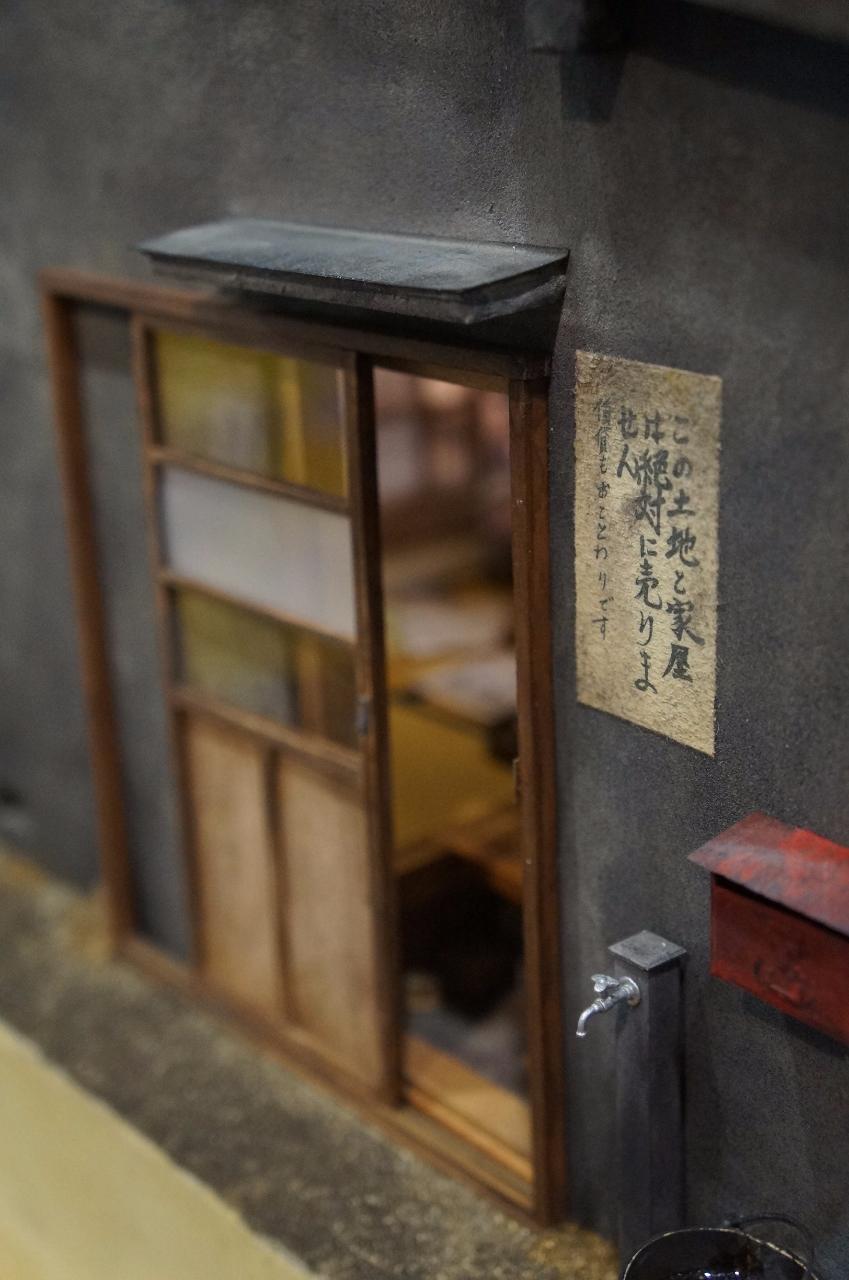 この土地と家屋
は絶対に売りま
せん
賃貸もおことわりです